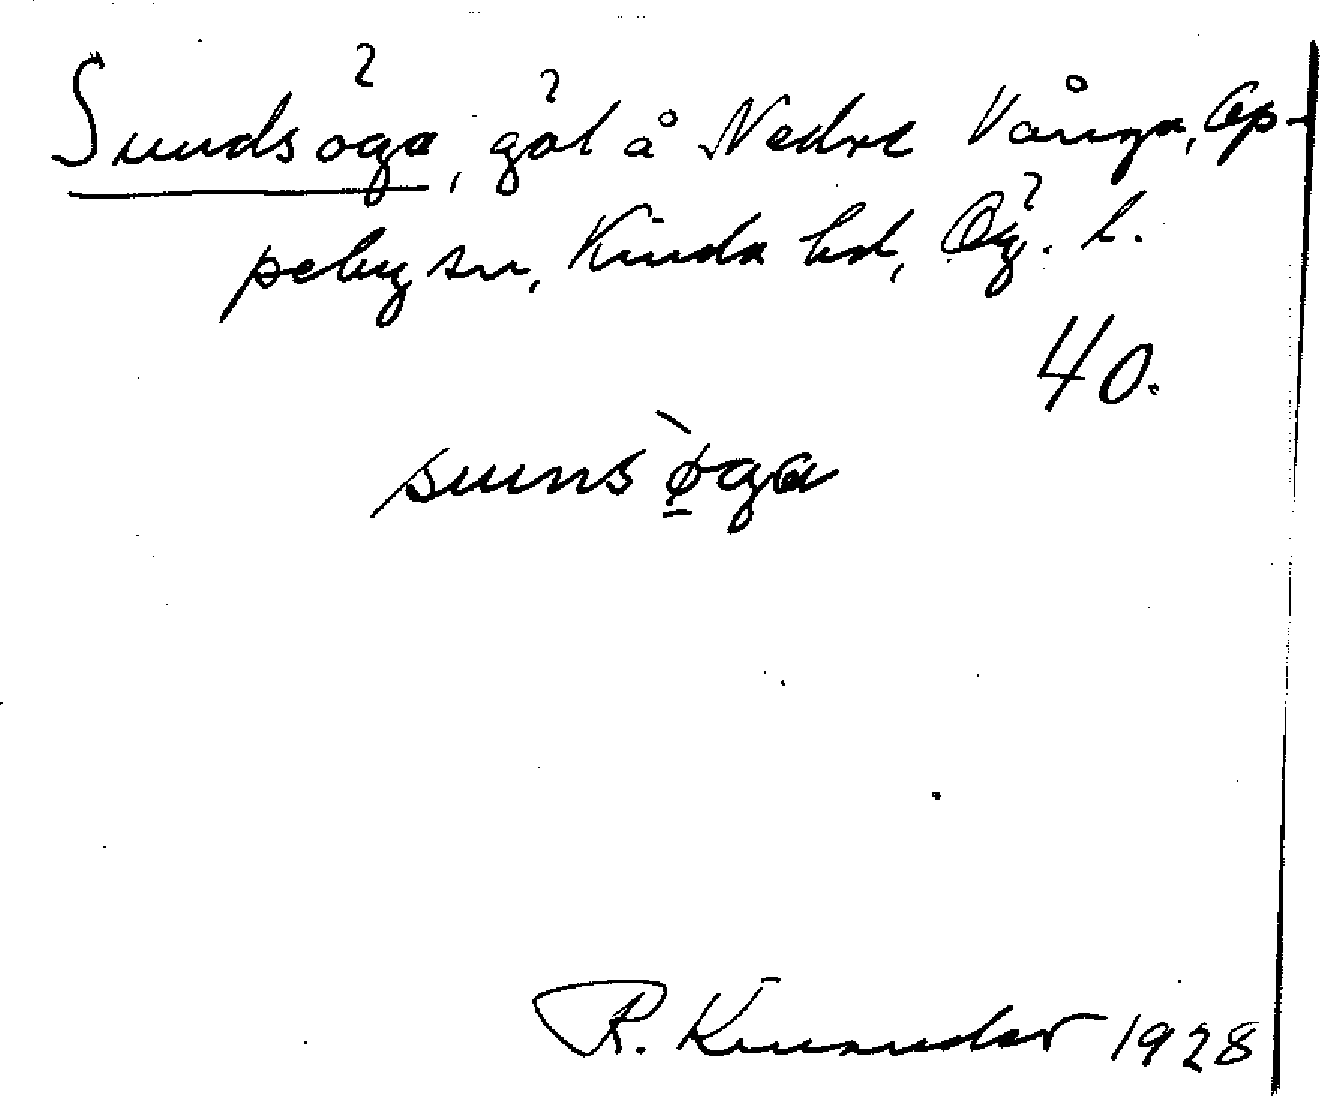 Sundsöga, göl å Nedre Vånga, Op-
peby sn, Kinda hd, Ög. l.
40.
suns ø̀ga
R. Kinnander 1928